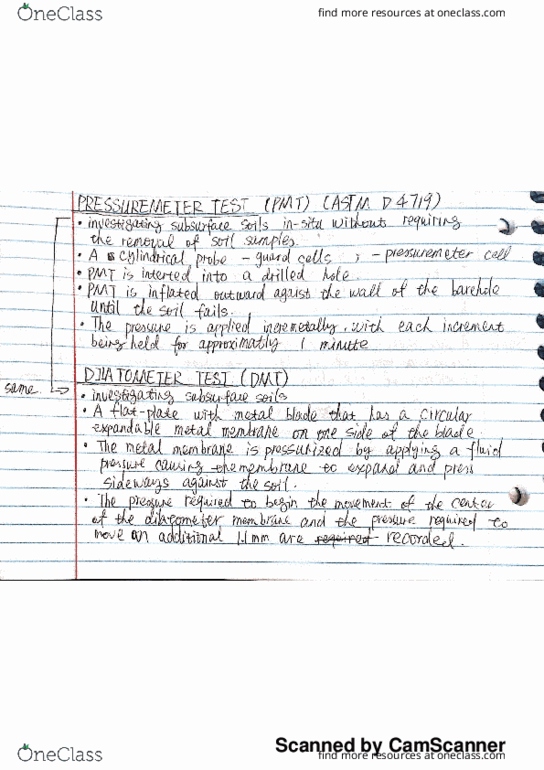 OneClass
find more resources at oneclass.com
PRESSUREMETER TEST (PMT) (ASTM D4719)
• investigating subsurface soils in-situ without requiring
the removal of soil samples.
• A cylindrical probe - guard cells ; - pressuremeter cell
• PMT is interted into a drilled hole.
• PMT is inflated outward agaist the wall of the barehole
until the soil fails.
• The pressure is applied incremetally, with each increment
being held for approximatly 1 minute
DJIATOMETER TEST (DMT)
same.
• investigating subsurface soils
• A flat-plate with metal blade that has a circular
expandable metal membrane on one side of the blade.
• The metal membrane is pressurized by applying a fluid
pressure causing the membrane to expand and press
sideways against the soil.
• The pressure required to begin the movement of the center
of the dilatometer membrane and the pressure required to
move an additional 1.1mm are required recorded.
Scanned by CamScanner
OneClass
find more resources at oneclass.com